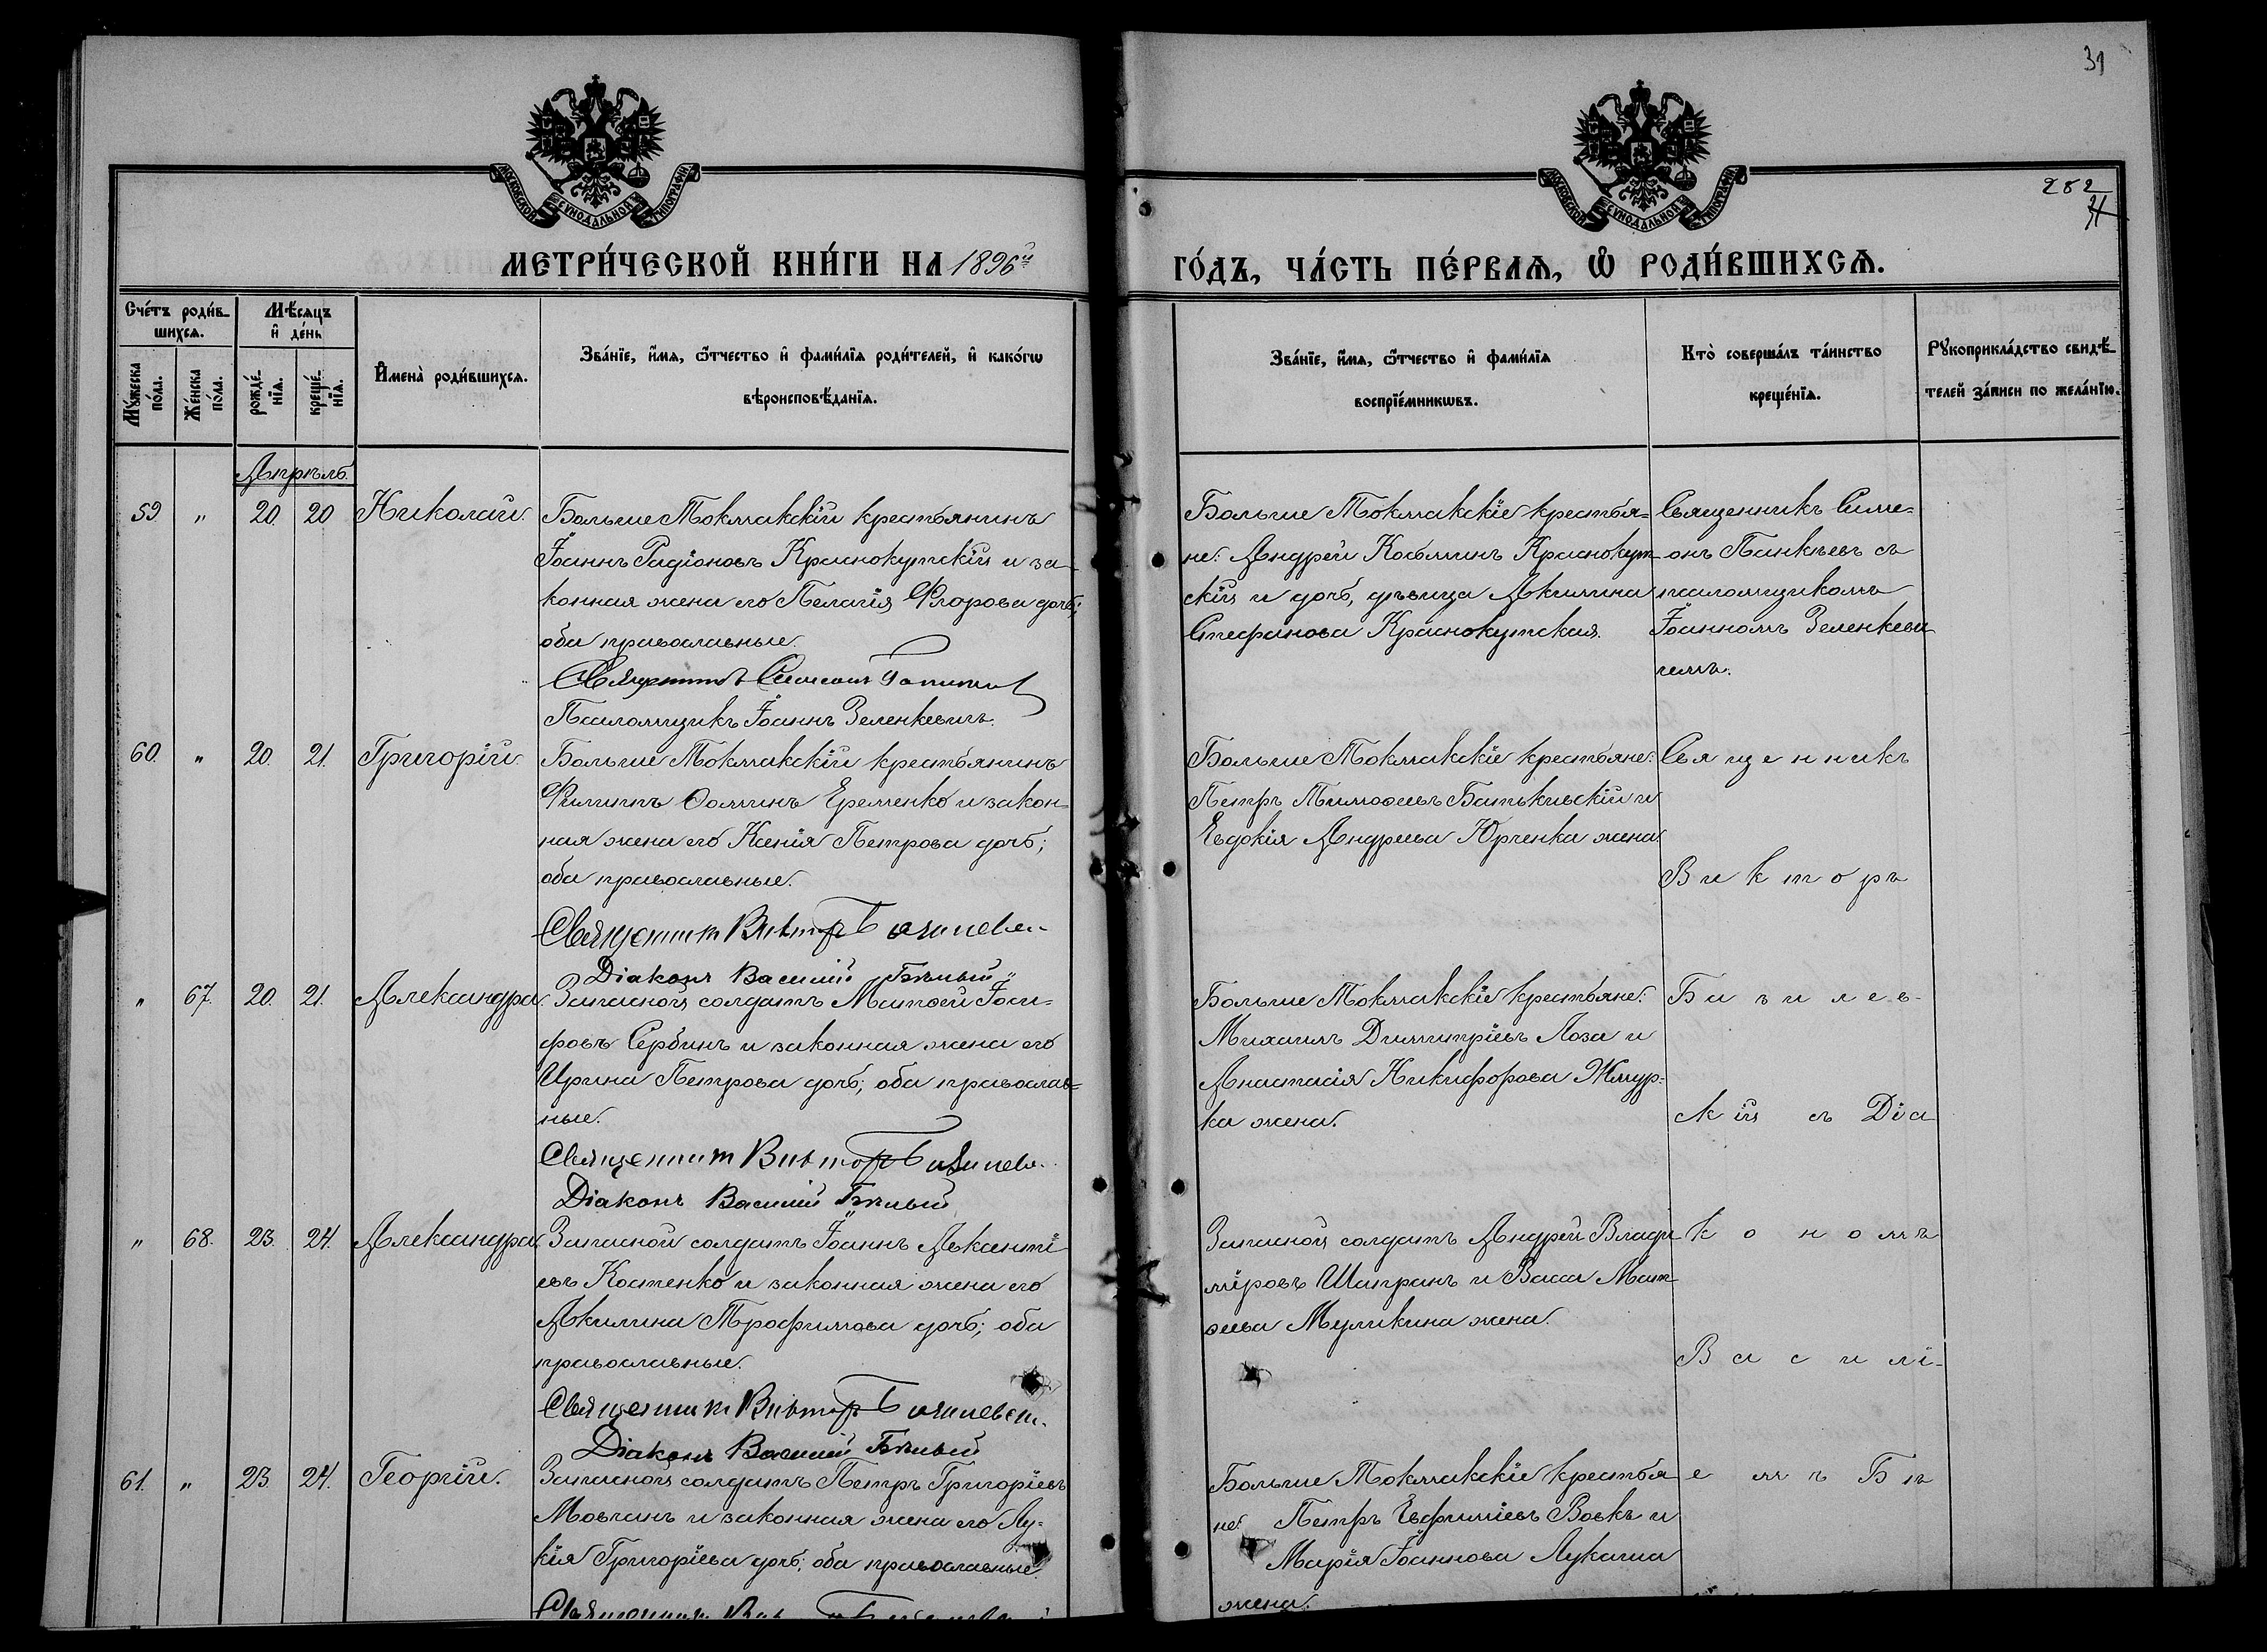 31
МОСКОВСКОЙ СѴНОДАЛЬНОЙ ТИПОГРАФІИ
МОСКОВСКОЙ СѴНОДАЛЬНОЙ ТИПОГРАФІИ
282
31
МЕТРИ́ЧЕСКОЙ КНИ́ГИ НА 1896й
ГО́ДЪ, ЧА́СТЬ ПЕ́РВАѦ, Ѡ҆ РОДИ́ВШИХСѦ.
Сче́тъ роди́в-
шихсѧ.
Мѣ́сѧцъ
и҆ де́нь
Мꙋ́жеска по́ла.
Же́нска по́ла.
рожде́нїѧ.
креще́нїѧ.
И҆мена̀ роди́вшихсѧ.
Зва́нїе, и҆́мѧ, ѻ҆́тчество и҆ фами́лїѧ роди́телей, и҆ како́гѡ
вѣроисповѣ́данїѧ.
Зва́нїе, и҆́мѧ, ѻ҆́тчество и҆ фами́лїѧ
воспрїе́мникѡвъ.
Кто̀ соверша́лъ та́инство
креще́нїѧ.
Рꙋкоприкла́дство свидѣ́-
телей за́писи по жела́нїю.
Апрѣль.
59. " 20. 20 Николай.
Больше Токмакскій крестьянинъ
Іоаннъ Радіоновъ Краснокутскій и за-
конная жена его Пелагія Флорова дочь;
оба православные.
Священникъ Симеонъ
Псаломщикъ Іоаннъ Зеленкевичъ.
Больше Токмакскіе крестья-
не: Андрей Косьминъ Краснокут-
скій и дочь, дѣвица Акилина
Стефанова Краснокутская.
Священникъ Симе-
онъ Панкѣевъ съ
псаломщикомъ
Іоанномъ Зеленкеви
чемъ.
60. " 20. 21. Григорій.
Больше Токмакскій крестьянинъ
Филиппъ Ѳоминъ Еременко и закон-
ная жена его Ксенія Петрова дочь;
оба православные.
Священникъ Викторъ Базилев.
Діаконъ Василій Бѣлый
Больше Токмакскіе крестьяне:
Петръ Тимоѳеевъ Батькивскій и
Евдокія Андреева Юрченка жена.
Священникъ
Викторъ
" 67. 20. 21. Александра.
Запасной солдатъ Матѳей Іоси-
фовъ Сербинъ и законная жена его
Ирина Петрова дочь; оба православ-
ные.
Священникъ Викторъ Базилев.
Діаконъ Василій Бѣлый
Больше Токмакскіе крестьяне:
Михаилъ Димитріевъ Лоза и
Анастасія Никифорова Жмур-
ка жена.
Базилев-
скій съ Діа
" 68. 23. 24. Александра.
Запасной солдатъ Іоаннъ Авксенті
евъ Костенко и законная жена его
Акилина Трофимова дочь; оба
православные.
Священникъ Викторъ Базилевск.
Діаконъ Василій Бѣлый
Запасной солдатъ Андрей Влади
міровъ Шапранъ и Васса Мат
ѳеева Муликина жена.
кономъ
Василі-
61. " 23. 24. Георгій.
Запасной солдатъ Петръ Григоріевъ
Мовчанъ и законная жена его Лу-
кія Григоріева дочь; оба православные.
Больше Токмакскіе крестья
не: Петръ Евфиміевъ Вовкъ и
Марія Іоаннова Лукаша
жена.
емъ Бѣ